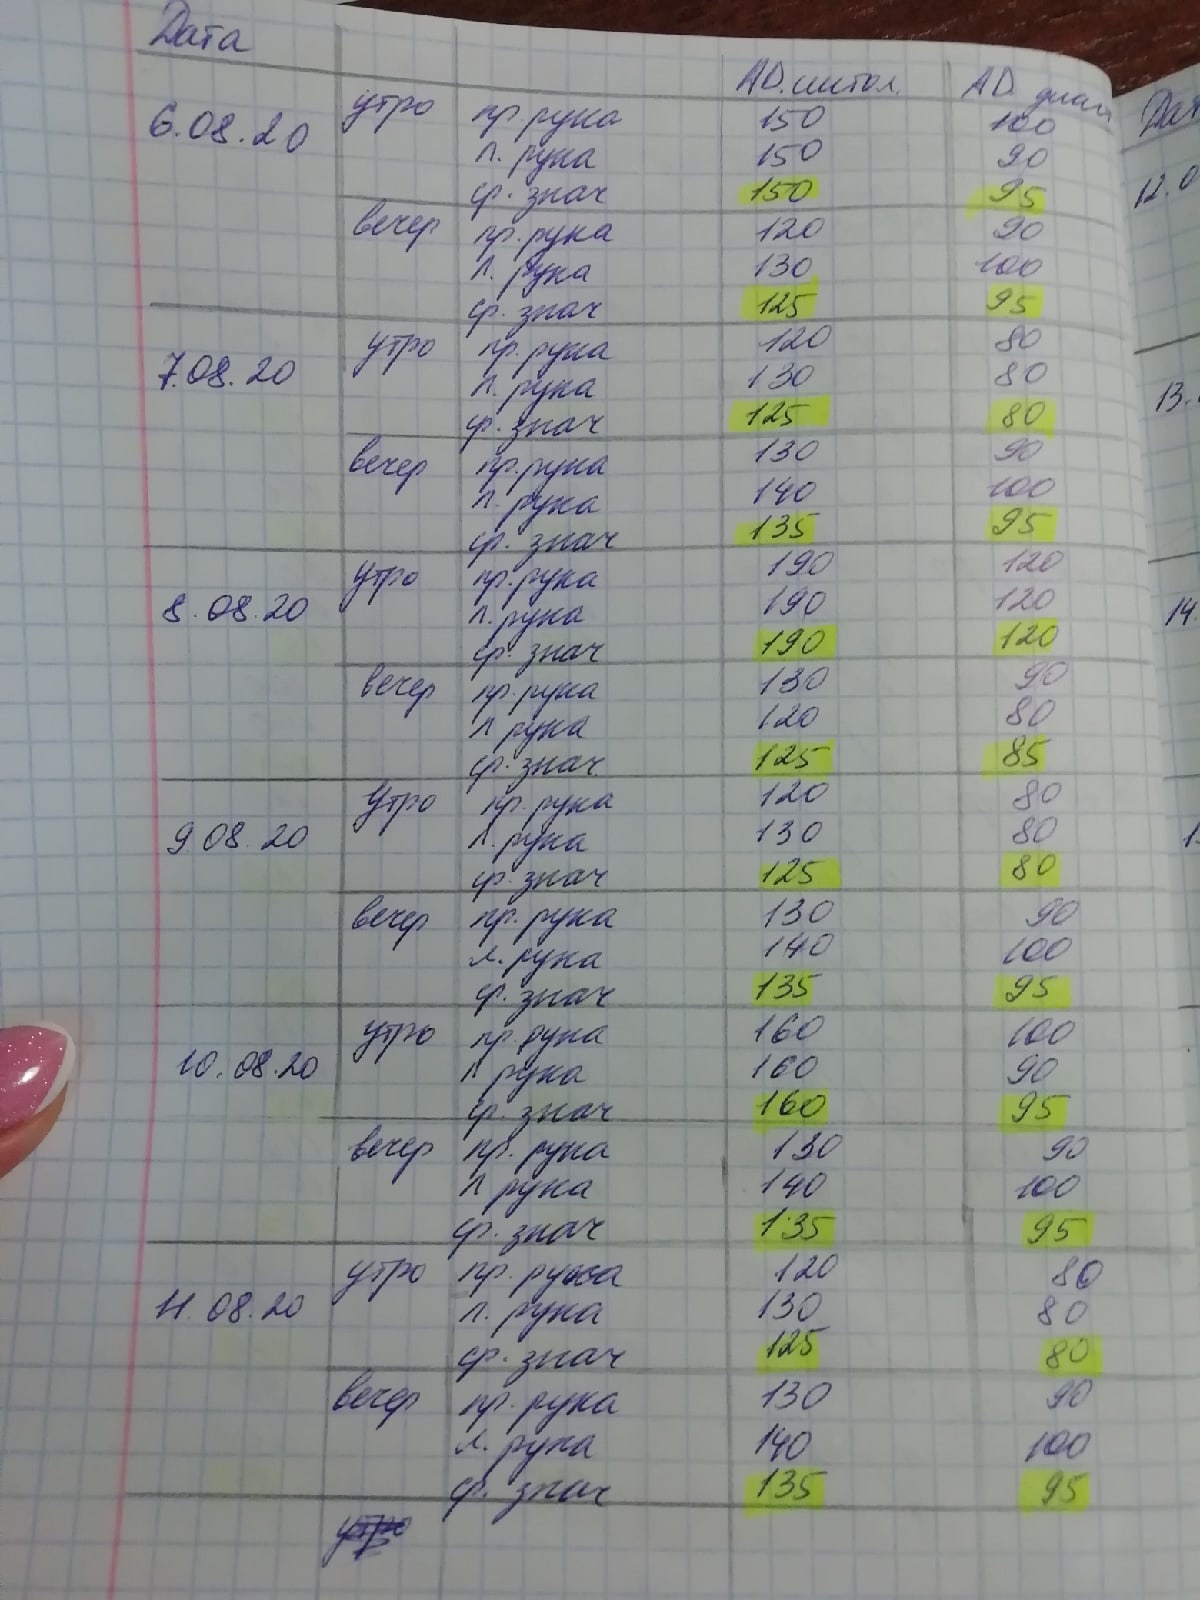 Дата АД.систол. АД. диаст
6.08.20 утро пр.рука 150 100
л. рука 150 90
ср. знач 150 95
вечер пр.рука 120 90
л. рука 130 100
ср. знач 125 95
7.08.20 утро пр.рука 120 80
л. рука 130 80
ср. знач 125 80
вечер пр.рука 130 90
л. рука 140 100
ср. знач 135 95
8.08.20 утро пр.рука 190 120
л. рука 190 120
ср. знач 190 120
вечер пр.рука 130 90
л рука 120 80
ср. знач 125 85
9.08.20 утро пр. рука 120 80
л. рука 130 80
ср. знач 125 80
вечер пр. рука 130 90
л. рука 140 100
ср. знач 135 95
10.08.20 утро пр. рука 160 100
л рука 160 90
ср. знач 160 95
вечер пр. рука 130 90
л рука 140 100
ср. знач 135 95
11.08.20 утро пр. рука 120 80
л. рука 130 80
ср. знач 125 80
вечер пр. рука 130 90
л. рука 140 100
ср. знач 135 95
Дат
12.0
13.
14.